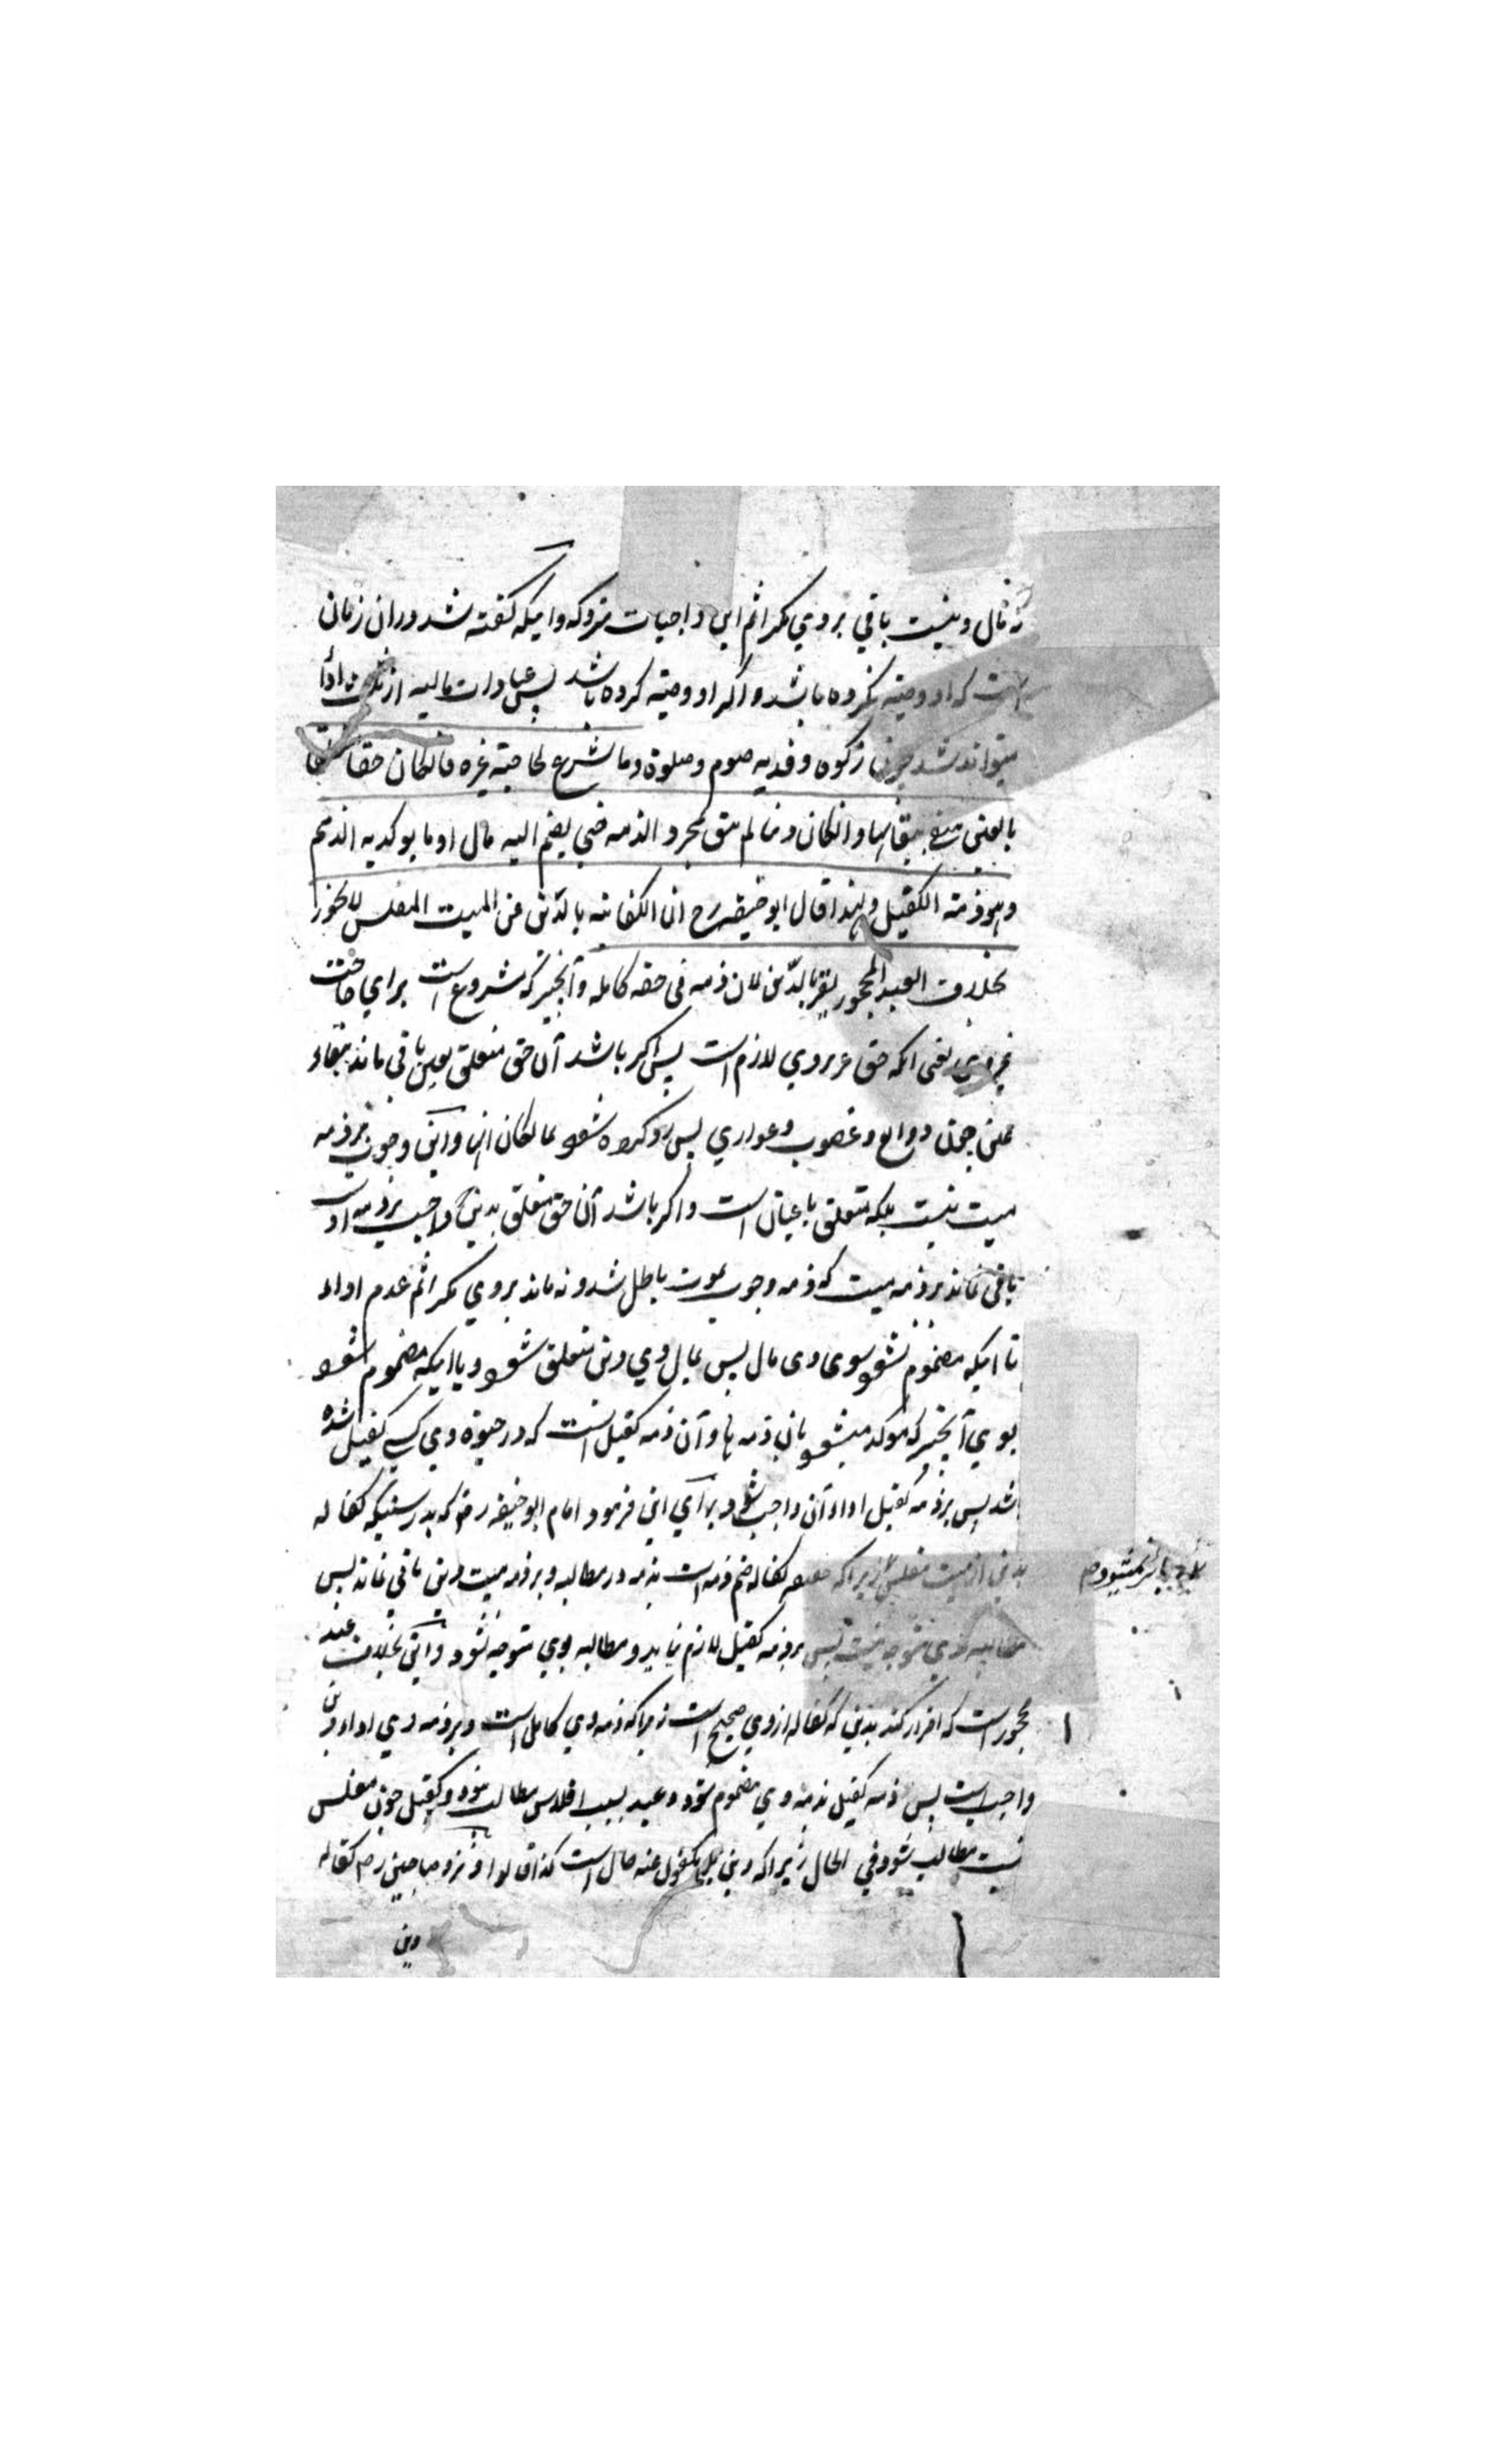 نه مال و نیست باقی بروی مکر اثم این واجبات متروکه و اینکه کفته شد در ان زمان
است که او وصیته نکرده باشد و اکر او وصیته کرده باشد پس عبادات مالیه از ثلث ادا
میتواند شد چون زکوة و فدیه صوم و صلوة وما شرع لحاجته غیره فانکان حقا متعلقا
بالعین یبقی ببقائها وانکان دینا لم یبق بمجرد الذمه حتی یضم الیه مال او ما یوکد به الذمم
وهو ذمة الکفیل ولهذا قال ابو حنیفه رح ان الکفالة بالدین عن المیت المفلس لا یجوز
بخلاف العبد المحجور یقر بالدین لان ذمه فی حقه کامله و آنچیز که مشروع است برای حاجت
غیر وی یعنی انکه حق غیر بروی لازم است پس اکر باشد آن حق متعلق بعین باقی ماند ببقاء
عین چون ودایع و غصوب و عواری پس رد کرده شود بمالکان انها و این وجوب بر ذمه
میت نیست بلکه متعلق باعیان است و اکر باشد آن حق متعلق بدین و واجب بر ذمه او
باقی نماند بر ذمه میت که ذمه وجوب بموت باطل شد و نه ماند بروی مکر اثم عدم اداء
تا اینکه مضموم نشود سوی وی مال پس بمال وی دین متعلق شود و یا اینکه مضموم شود
بوی آنچیز که موکد میشود بان ذمه ها و آن ذمه کفیل است که در حیوة وی کسی کفیل شده
باشد پس بر ذمه کفیل اداء آن واجب شود و برای این فرمود امام ابو حنیفه رض که بدرستیکه کفاله
بدین از میت مفلس زیراکه کفاله ضم ذمه است بذمه در مطالبه و بر ذمه میت دین باقی نماند پس
مطالبه بوی متوجه نیست پس بر ذمه کفیل لازم نیاید و مطالبه بوی متوجه نشود و این بخلاف عبد
محجور است که اقرار کند بدین که کفاله از وی صحیح است زیراکه ذمه وی کامل است و بر ذمه وی اداء دین
واجب است پس ذمه کفیل بذمه وی مضموم شود و عبد بسبب افلاس مطالب نبود و کفیل چون مفلس
نیست مطالب شود فی الحال زیراکه دین بر مکفول عنه حال است کذا قالوا و نزد صاحبین رح کفاله
دین